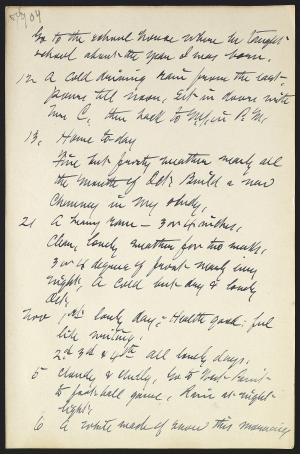 Go to the school house where he taught
school about the year I was born.
12. A cold driving rain from the east
pours till noon, sit in doors with
Mrs C, then back to N.Y. in P.M.
13, Home to-day
Fine but frosty weather nearly all
the month of Oct. Build a new
chimney in my study,
21 A heavy rain — 3 or 4 inches,
Clear, lovely weather for two weeks,
3 or 4 degrees of frost nearly every
night, A cold but dry & lovely
Oct,
Nov 1st lovely day, - Health good - feel
like writing,
2d 3d & 4th all lovely days,
5 Cloudy & chilly, Go to West-Point
to foot-ball game, Rain at night
light.
6 A white made of snow this morning